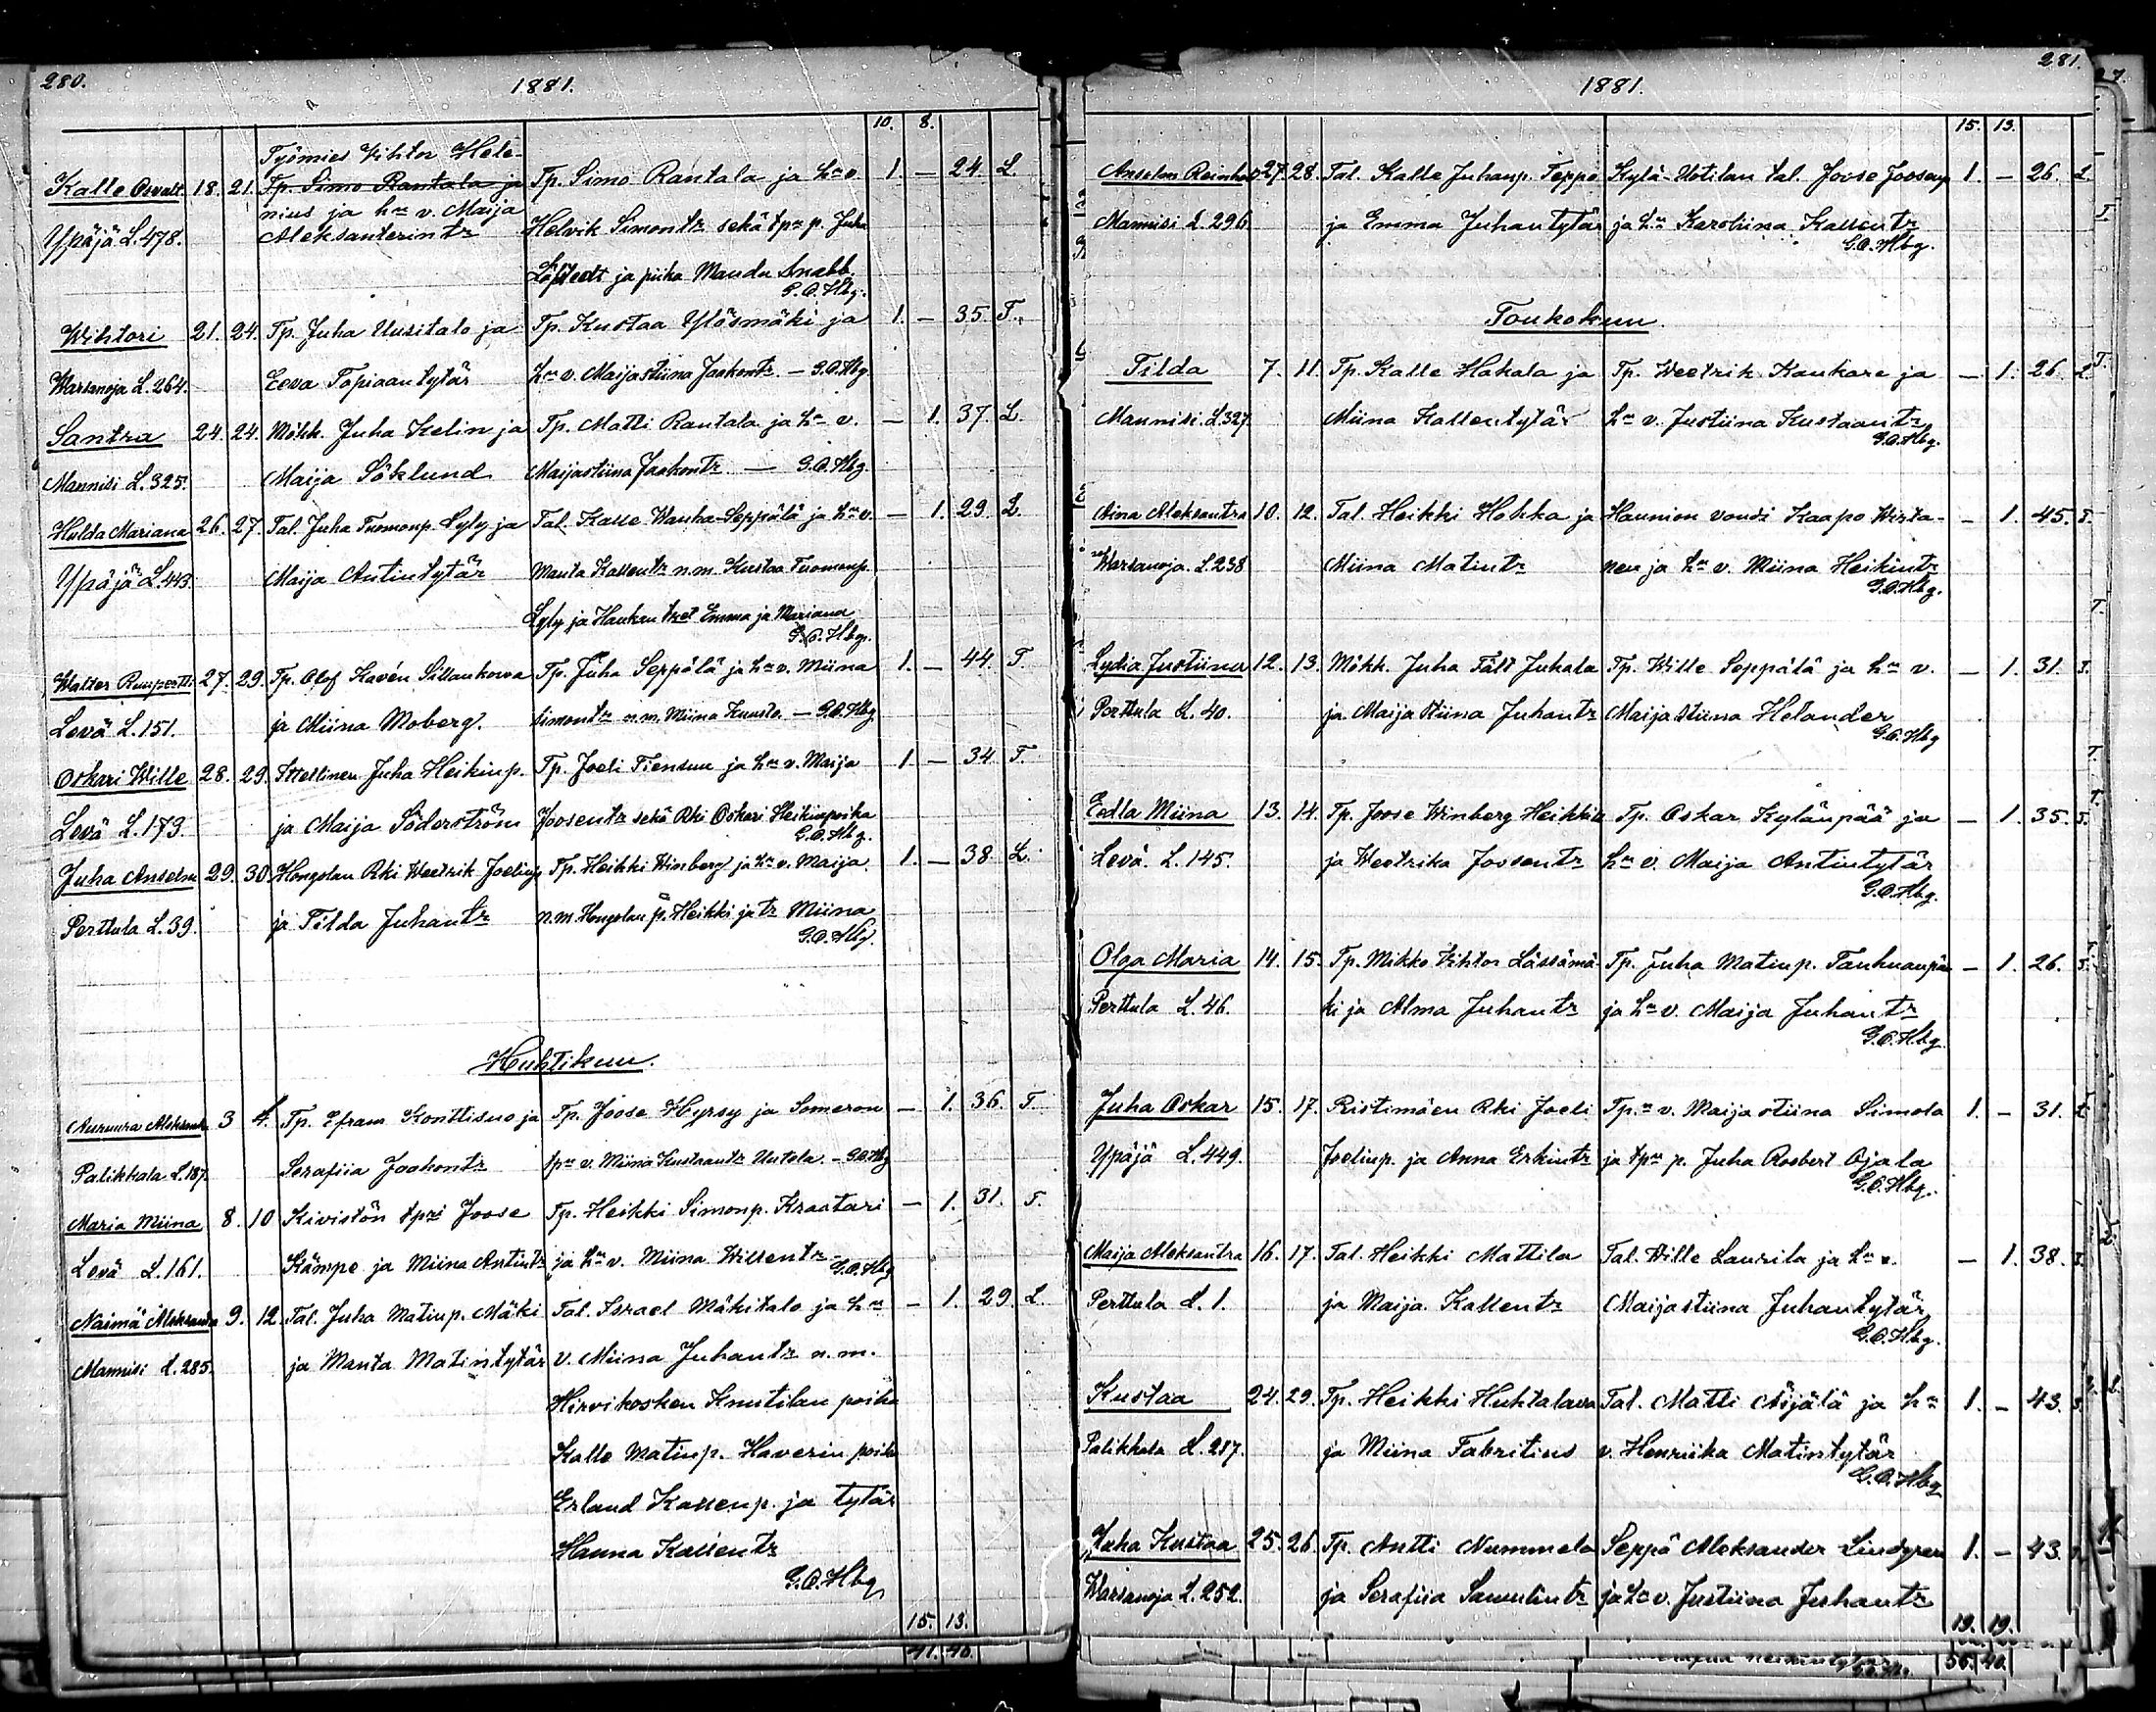 280.
1881.
10. 8.
Työmies Vihtor Hele-
Kalle Osvalt 18. 21. Tp. Simo Rantala ja Tp. Simo Rantala ja hra v. 1. — 24. L.
nius ja hra v. Maija
Ypäjä L. 478. Aleksanterintr Helvik Simontr sekä tpn p. Juha
Löfstedt ja piika Manda Snabb.
G.O. Hbg.
Wihtori 21. 24. Tp. Juha Uusitalo ja Tp. Kustaa Ylösmäki ja 1. — 35. T.
Warsanoja L. 264. Eeva Topiaantytär hra v. Maijastiina Jaakontr — G.O. Hbg
Santra 24. 24. Mökk. Juha Kelin ja Tp. Matti Rantala ja hra v. — 1. 37. L.
Mannisi L. 325. Maija Söklund Maijastiina Jaakontr — G.O. Hbg.
Hulda Mariana 26. 27. Tal. Juha Tuomonp. Lyly ja Tal. Kalle Wanha-Seppälä ja hra v. — 1. 29. L.
Ypäjä L. 443. Maija Antintytär Manta Kallentr n.m. Kustaa Tuomonp.
Lyly ja Haukan tret Emma ja Mariana
G.O. Hbg.
Walter Ruupertti 27. 29. Tp. Olof Kavén Sillankorva Tp. Juha Seppälä ja hra v. Miina 1. — 44. T.
Levä L. 151. ja Miina Moberg. Simontr n.m. Miina Kuusto. — G.O. Hbg
Oskari Wille 28. 29. Itsellinen Juha Heikinp. Tp. Joeli Tiensuu ja hra v. Maija 1. — 34. T.
Levä L. 173. ja Maija Söderström Joosentr sekä Rki Oskari Heikinpoika
G.O. Hbg.
Juha Anselm 29. 30. Hongolan Rki Weetrik Joelinp. Tp. Heikki Winberg ja hra v. Maija 1. — 38. L.
Perttula L. 39. ja Tilda Juhantr n.m. Hongolan p. Heikki ja tr Miina
G.O. Hbg.
Huhtikuu.
3 4. Tp. Efram Konttisuo ja Tp. Joose Hyrsy ja Someron — 1. 36. T.
Palikkala L. 187. Serafiia Jaakontr tpn v. Miina Kustaantr Uutela. — G.O. Hbg
Maria Miina 8. 10 Kivistön tpri Joose Tp. Heikki Simonp. Kraatari — 1. 31. T.
Levä L. 161. Kämpe ja Miina Antintr ja hra v. Miina Willentr — G.O. Hbg
Naimä Aleksandra 9. 12. Tal. Juha Matinp. Mäki Tal. Israel Mäkitalo ja hra — 1. 29. L.
Mannisi L. 285. ja Manta Matintytär v. Miina Juhantr n.m.
Hirvikosken Knutilan poika
Kalle Matinp. Haverin poika
Erland Kallenp. ja tytär
Hanna Kallentr
G.O. Hbg
15. 13.
41. 40.
281.
1881.
15. 13.
Anselm Reinhold 27. 28. Tal. Kalle Juhanp. Teppo Kylä-Uotilan tal. Joose Joosenp 1. — 26. L.
Mannisi L. 296. ja Emma Juhantytär ja hra Karoliina Kallentr
G.O. Hbg.
Toukokuu.
Tilda 7. 11. Tp. Kalle Hakala ja Tp. Weetrik Kankare ja — 1. 26. L.
Mannisi L. 327. Miina Kallentytär hra v. Justiina Kustaantr
G.O. Hbg.
Aina Aleksantra 10. 12. Tal. Heikki Hokka ja Haunion vouti Kaapo Wirta- — 1. 45. T.
Warsanoja. L. 238 Miina Matintr nen ja hra v. Miina Heikintr
G.O. Hbg.
Lydia Justiina 12. 13. Mökk. Juha Fält Juhala Tp. Wille Seppälä ja hra v. — 1. 31. T.
Perttula L. 40. ja Maija Stiina Juhantr Maija Stiina Helander
G.O. Hbg
Eedla Miina 13. 14. Tp. Joose Winberg Heikkilä Tp. Oskar Kylänpää ja — 1. 35. T.
Levä L. 145. ja Weetrika Joosentr hra v. Maija Antintytär
G.O. Hbg.
Olga Maria 14. 15. Tp. Mikko Vihtor Lässämä- Tp. Juha Matinp. Tanhuanpää — 1. 26. T.
Perttula L. 46. ki ja Alma Juhantr ja hra v. Maija Juhantr
G.O. Hbg.
Juha Oskar 15. 17. Ristimäen Rki Joeli Tpn v. Maija Stiina Simola 1. — 31. L.
Ypäjä L. 449. Joelinp. ja Anna Erkintr ja tpn p. Juha Roobert Ojala
G.O. Hbg.
Maija Aleksantra 16. 17. Tal. Heikki Mattila Tal. Wille Laurila ja hra v. — 1. 38. T.
Perttula L. 1. ja Maija Kallentr Maijastiina Juhantytär
G.O. Hbg.
Kustaa 24. 29. Tp. Heikki Huhtalawa Tal. Matti Äijälä ja hra 1. — 43. T.
Palikkala L. 217. ja Miina Fabritius v. Henriika Matintytär
G.O. Hbg
Juha Kustaa 25. 26. Tp. Antti Nummela Seppä Aleksander Lindgren 1. — 43.
Warsanoja L. 252. ja Serafiia Samulintr ja hra v. Justiina Juhantr
19. 19.
56. 40.